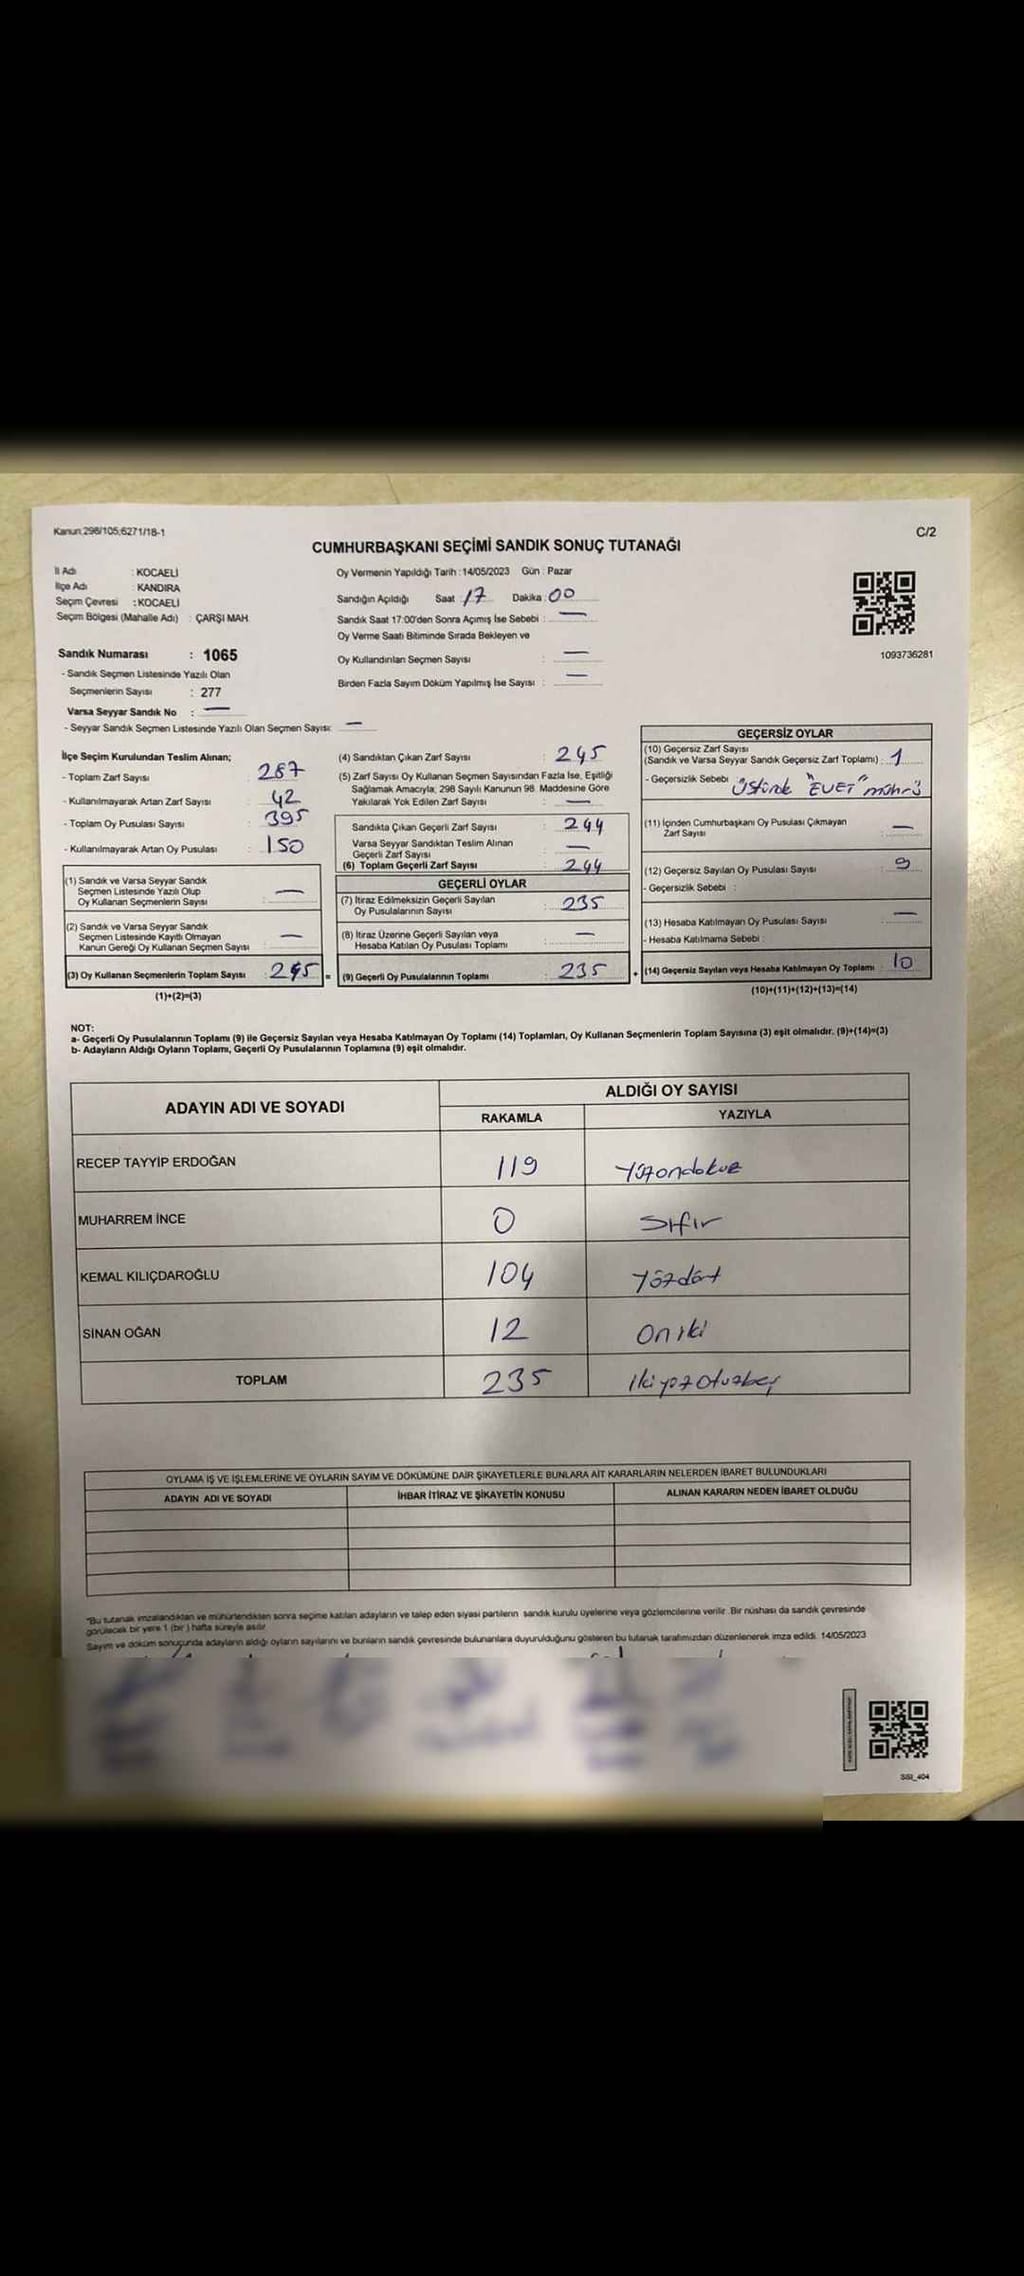 Kanun:298/105;6271/18-1
C/2
CUMHURBAŞKANI SEÇİMİ SANDIK SONUÇ TUTANAĞI
İl Adı : KOCAELİ
İlçe Adı : KANDIRA
Seçim Çevresi : KOCAELİ
Seçim Bölgesi (Mahalle Adı) : ÇARŞI MAH.
Oy Vermenin Yapıldığı Tarih : 14/05/2023 Gün : Pazar
Sandığın Açıldığı Saat : 17 Dakika : 00
Sandık Saat 17:00'den Sonra Açımış İse Sebebi : —
Oy Verme Saati Bitiminde Sırada Bekleyen ve
Oy Kullandırılan Seçmen Sayısı : —
Birden Fazla Sayım Döküm Yapılmış İse Sayısı : —
1093736281
Sandık Numarası : 1065
- Sandık Seçmen Listesinde Yazılı Olan
Seçmenlerin Sayısı : 277
Varsa Seyyar Sandık No : —
- Seyyar Sandık Seçmen Listesinde Yazılı Olan Seçmen Sayısı: —
İlçe Seçim Kurulundan Teslim Alınan;
- Toplam Zarf Sayısı : 287
- Kullanılmayarak Artan Zarf Sayısı : 42
- Toplam Oy Pusulası Sayısı : 395
- Kullanılmayarak Artan Oy Pusulası : 150
(1) Sandık ve Varsa Seyyar Sandık
Seçmen Listesinde Yazılı Olup
Oy Kullanan Seçmenlerin Sayısı : —
(2) Sandık ve Varsa Seyyar Sandık
Seçmen Listesinde Kayıtlı Olmayan
Kanun Gereği Oy Kullanan Seçmen Sayısı : —
(3) Oy Kullanan Seçmenlerin Toplam Sayısı : 245 =
(1)+(2)=(3)
(4) Sandıktan Çıkan Zarf Sayısı : 245
(5) Zarf Sayısı Oy Kullanan Seçmen Sayısından Fazla İse, Eşitliği
Sağlamak Amacıyla, 298 Sayılı Kanunun 98. Maddesine Göre
Yakılarak Yok Edilen Zarf Sayısı : —
Sandıkta Çıkan Geçerli Zarf Sayısı : 244
Varsa Seyyar Sandıktan Teslim Alınan
Geçerli Zarf Sayısı : —
(6) Toplam Geçerli Zarf Sayısı : 244
GEÇERLİ OYLAR
(7) İtiraz Edilmeksizin Geçerli Sayılan
Oy Pusulalarının Sayısı : 235
(8) İtiraz Üzerine Geçerli Sayılan veya
Hesaba Katılan Oy Pusulası Toplamı : —
(9) Geçerli Oy Pusulalarının Toplamı : 235 +
GEÇERSİZ OYLAR
(10) Geçersiz Zarf Sayısı
(Sandık ve Varsa Seyyar Sandık Geçersiz Zarf Toplamı) : 1
- Geçersizlik Sebebi : Üstünde "EVET" mührü
(11) İçinden Cumhurbaşkanı Oy Pusulası Çıkmayan
Zarf Sayısı : —
(12) Geçersiz Sayılan Oy Pusulası Sayısı : 9
- Geçersizlik Sebebi :
(13) Hesaba Katılmayan Oy Pusulası Sayısı : —
- Hesaba Katılmama Sebebi :
(14) Geçersiz Sayılan veya Hesaba Katılmayan Oy Toplamı : 10
(10)+(11)+(12)+(13)=(14)
NOT:
a- Geçerli Oy Pusulalarının Toplamı (9) ile Geçersiz Sayılan veya Hesaba Katılmayan Oy Toplamı (14) Toplamları, Oy Kullanan Seçmenlerin Toplam Sayısına (3) eşit olmalıdır. (9)+(14)=(3)
b- Adayların Aldığı Oyların Toplamı, Geçerli Oy Pusulalarının Toplamına (9) eşit olmalıdır.
ADAYIN ADI VE SOYADI
ALDIĞI OY SAYISI
RAKAMLA YAZIYLA
RECEP TAYYİP ERDOĞAN 119 Yüzondokuz
MUHARREM İNCE 0 Sıfır
KEMAL KILIÇDAROĞLU 104 Yüzdört
SİNAN OĞAN 12 Oniki
TOPLAM 235 İkiyüzOtuzbeş
OYLAMA İŞ VE İŞLEMLERİNE VE OYLARIN SAYIM VE DÖKÜMÜNE DAİR ŞİKAYETLERLE BUNLARA AİT KARARLARIN NELERDEN İBARET BULUNDUKLARI
ADAYIN ADI VE SOYADI İHBAR İTİRAZ VE ŞİKAYETİN KONUSU ALINAN KARARIN NEDEN İBARET OLDUĞU
*Bu tutanak imzalandıktan ve mühürlendikten sonra seçime katılan adayların ve talep eden siyasi partilerin sandık kurulu üyelerine veya gözlemcilerine verilir. Bir nüshası da sandık çevresinde
görülecek bir yere 1 (bir) hafta süreyle asılır.
Sayım ve döküm sonucunda adayların aldığı oyların sayılarını ve bunların sandık çevresinde bulunanlara duyurulduğunu gösteren bu tutanak tarafımızdan düzenlenerek imza edildi. 14/05/2023
SSI_404